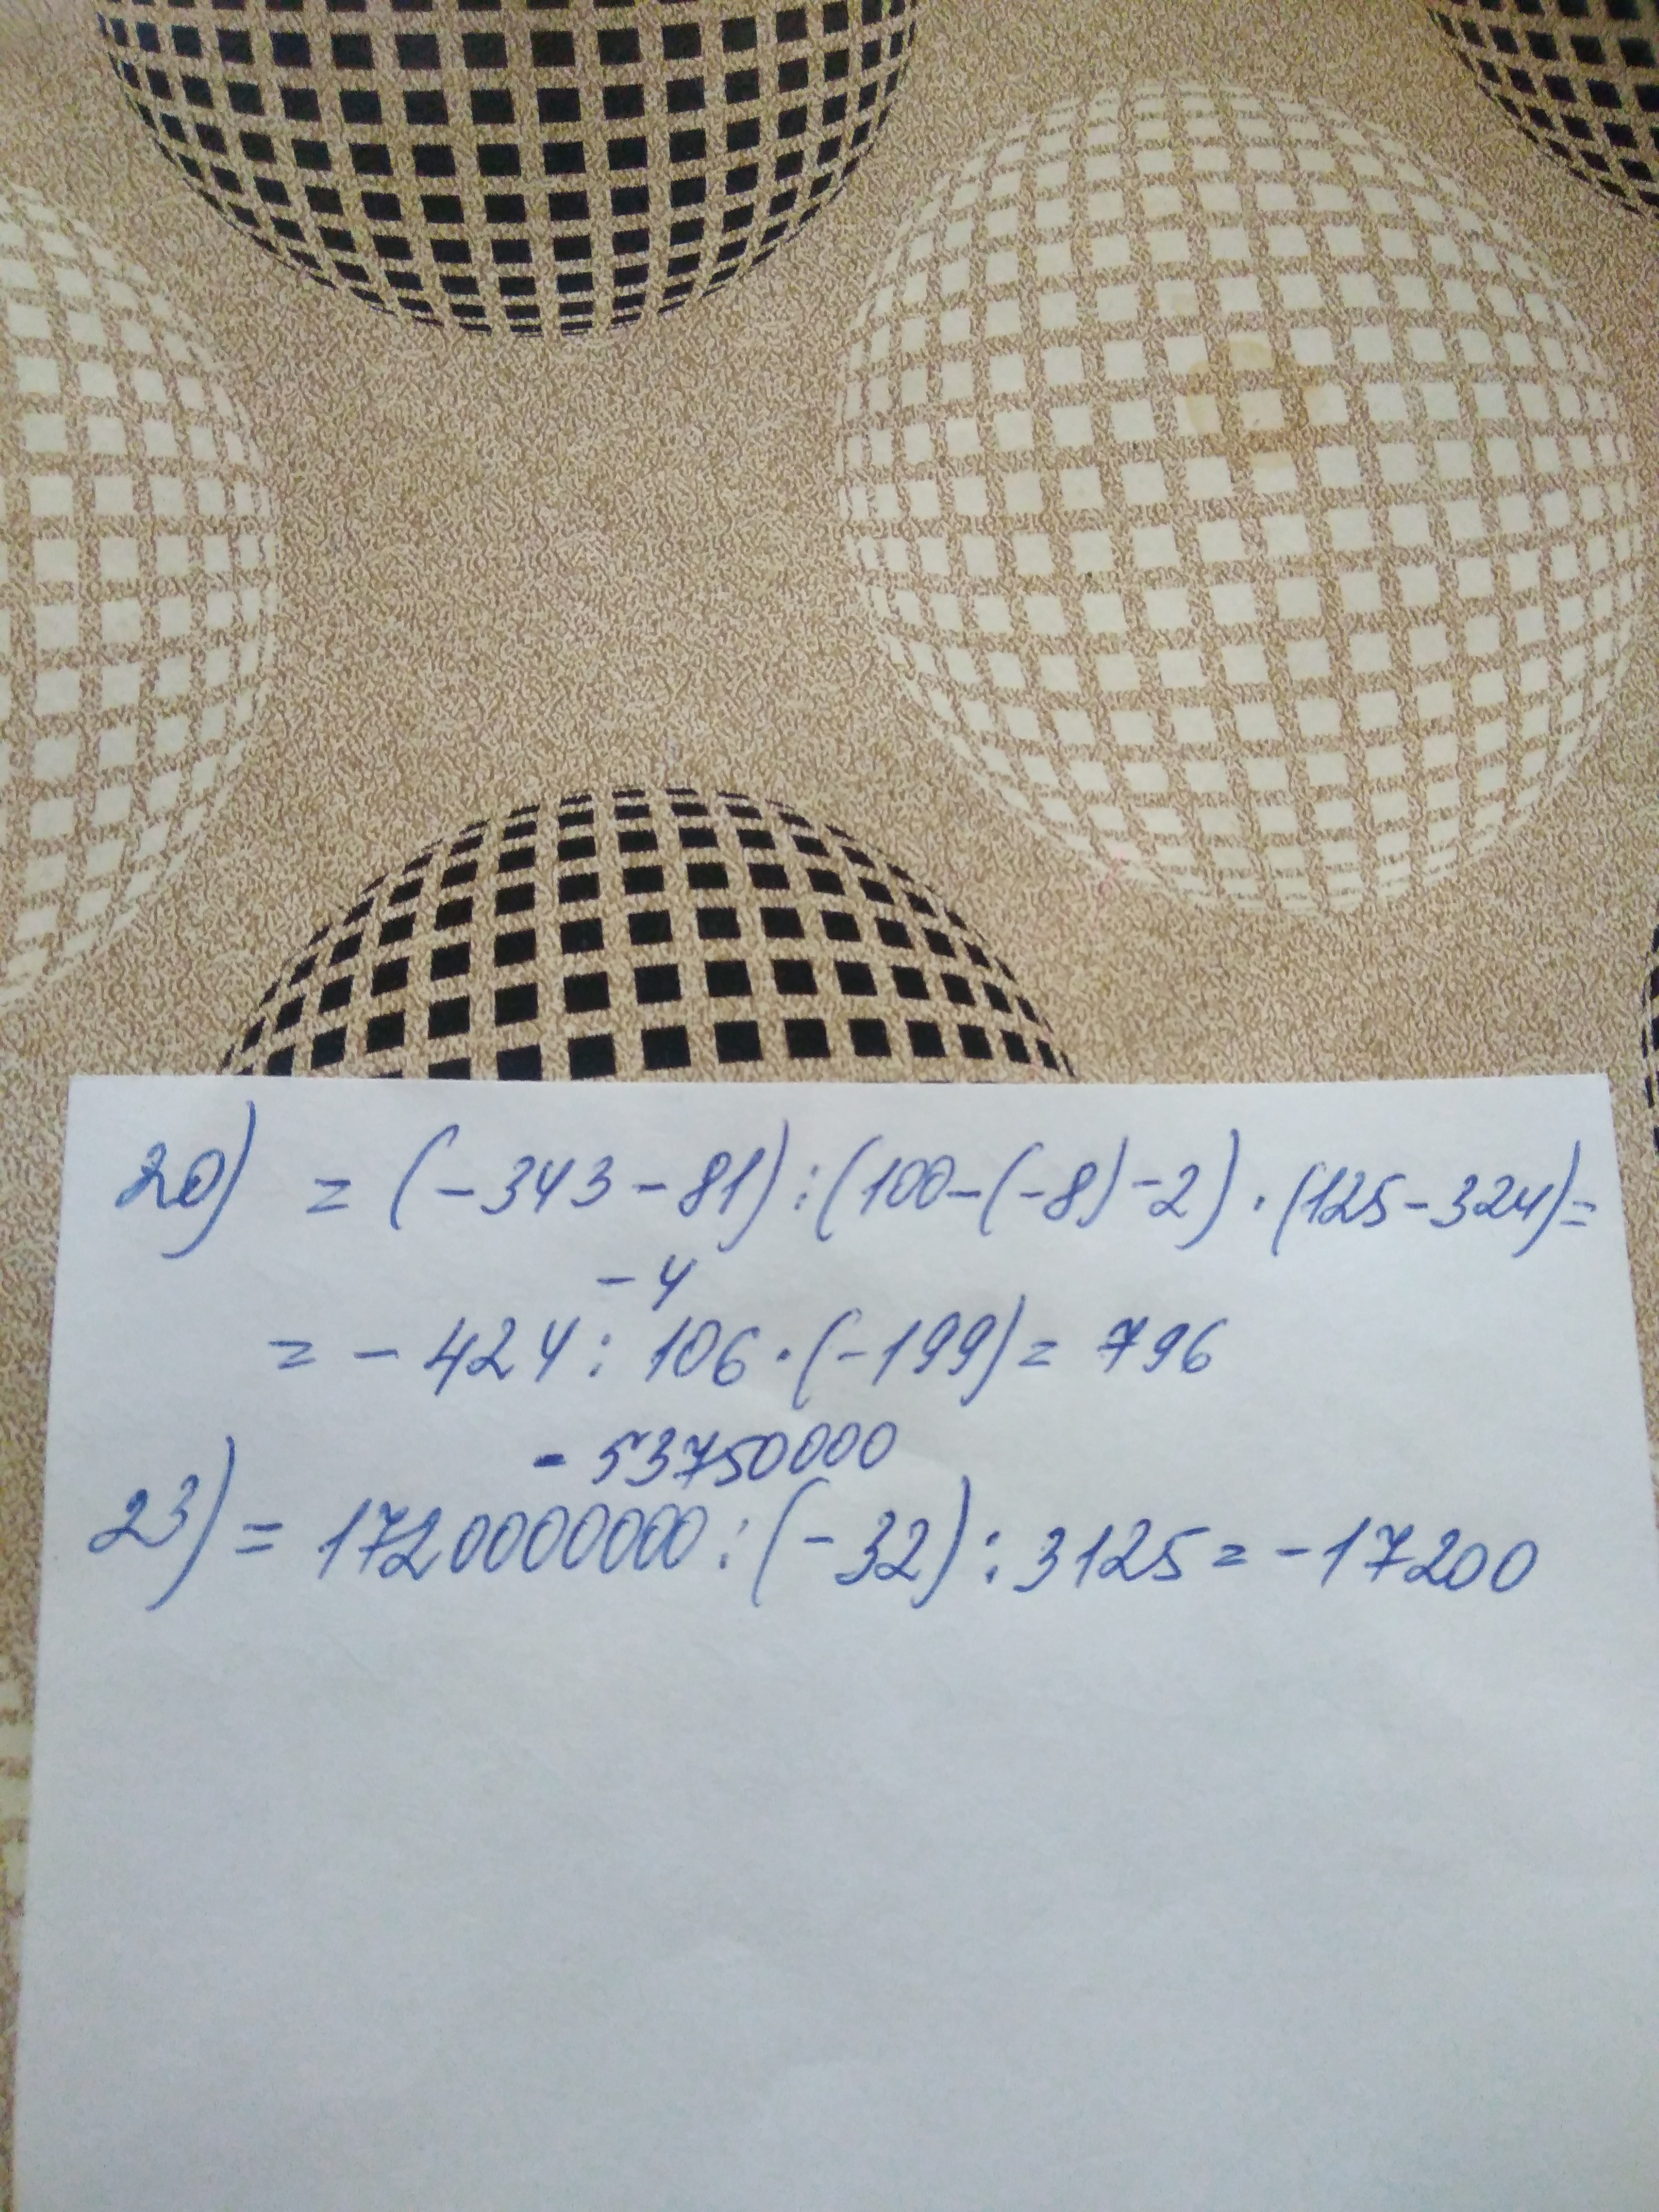 20) = (-343-81):(100-(-8)-2)·(125-324)=
-4
= -424:106·(-199)= 796
-53750000
23) = 1720000000:(-32):3125=-17200